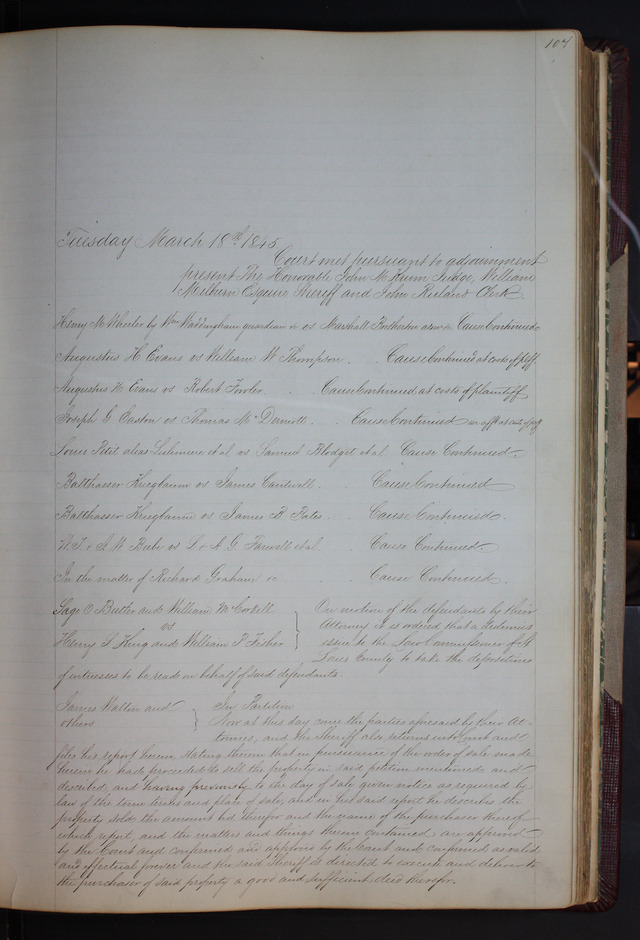 107
Tuesday March 18th 1845
Court met pursuant to adjournment
present The Honorable John M. Krum Judge, William
Milburn Esquire Sheriff and John Ruland Clerk.
Henry M. Wheeler by Wm Waddingham guardian &c vs Marshall Brotherton adm &c Cause Continued
Augustus H. Evans vs William W Thompson. Cause Continued at costs of plff.
Augustus H Evans vs Robert Fowler. Cause Continued at costs of plaintiff
Joseph G Easton vs Thomas McDermott. Cause Continued on afft at costs of
Louis Petit alias et al vs Samuel Blodget et al Cause Continued.
Balthasser Kriegbaum vs James Cantwell. Cause Continued
Balthasser Kriegbaum vs James B Bates. Cause Continued.
& W Beebe vs L & A G Farwell et al. Cause Continued.
In the matter of Richard Graham &c Cause Continued.
Sage O Butler and William McCorkell
vs
Henry L King and William P. Fisher
On motion of the defendants by their
Attorney it is ordered that a Dedimus
issue to the Law Commissioner of St
Louis County to take the depositions
of witnesses to be read on behalf of said defendants.
James Walton and
others
In Partition
Now at this day come the parties aforesaid by their At-
tornies, and the Sheriff also returns into Court and
files his report herein, stating therein that in pursuance of the order of sale made
herein he had proceeded to sell the property in said petition mentioned and
described, and having previously to the day of sale given notice as required by
law of the time terms and place of sale, and in his said report he describes the
property sold, the amount bid therefor and the name of the purchaser thereof
which report, and the matters and things therein contained are approved
by the Court and confirmed and approved by the Court and confirmed as valid
and effectual forever and the said Sheriff is directed to execute and deliver to
the purchaser of said property a good and sufficient deed therefor.